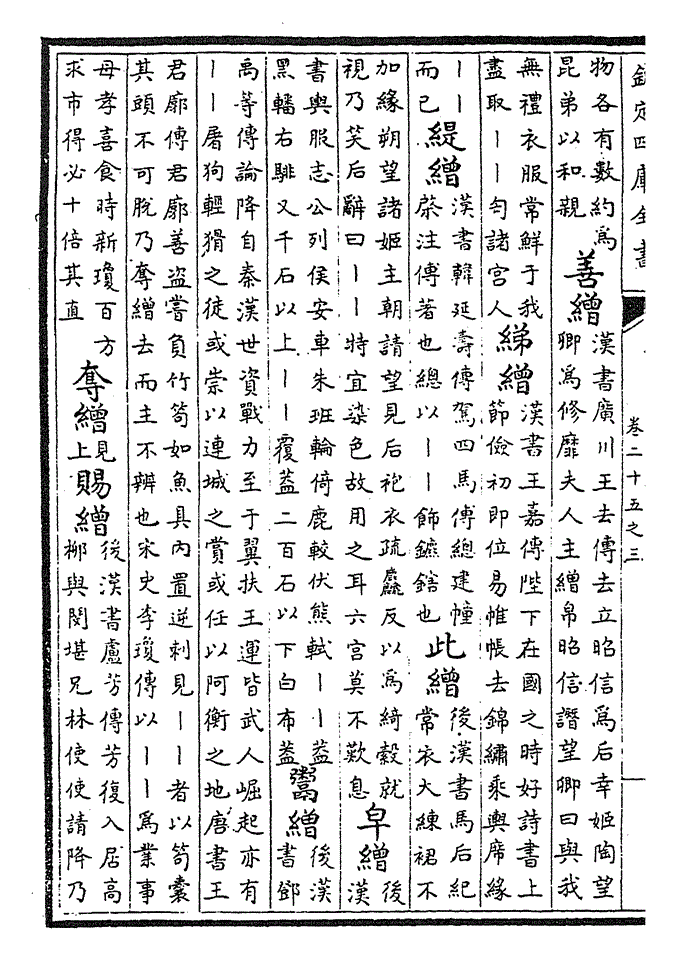 欽定四庫全書
卷二十五之三
一
物各有數約為
昆弟以和親
善繒
漢書廣川王去傳去立昭信為后幸姬陶望
卿為修靡夫人主繒帛昭信譖望卿曰與我
無禮衣服常鮮于我
盡取丨丨匄諸宫人
綈繒
漢書王嘉傳陛下在國之時好詩書上
節儉初即位易帷帳去錦繡乘輿席緣
丨丨
而已
緹繒
漢書韓延壽傳駕四馬傅總建幢
棨注傅著也總以丨丨飾鑣鎋也
此繒
後漢書馬后紀
常衣大練裙不
加緣朔望諸姬主朝請望見后袍衣疏麤反以為綺縠就
視乃笑后辭曰丨丨特宜染色故用之耳六宫莫不歎息
皁繒
後
漢
書輿服志公列侯安車朱班輪倚鹿較伏熊軾丨丨葢
黑轓右騑又千石以上丨丨覆葢二百石以下白布葢
鬻繒
後漢
書鄧
禹等傳論降自秦漢世資戰力至于翼扶王運皆武人崛起亦有
丨丨屠狗輕猾之徒或崇以連城之賞或任以阿衡之地唐書王
君廓傳君廓善盗嘗負竹笱如魚具內置逆刺見丨丨者以笱囊
其頭不可脫乃奪繒去而主不辨也宋史李瓊傳以丨丨為業事
母孝喜食時新瓊百方
求市得必十倍其直
奪繒
見
上
賜繒
後漢書盧芳傳芳復入居高
柳與閔堪兄林使使請降乃